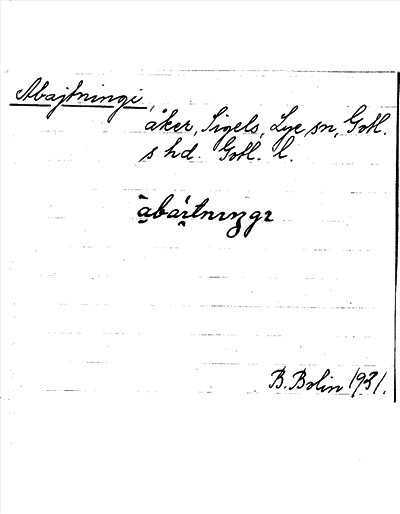 Abajtningi,
åker, Sigels, Lye sn, Gotl.
s hd. Gotl. l.
B. Bolin 1931.